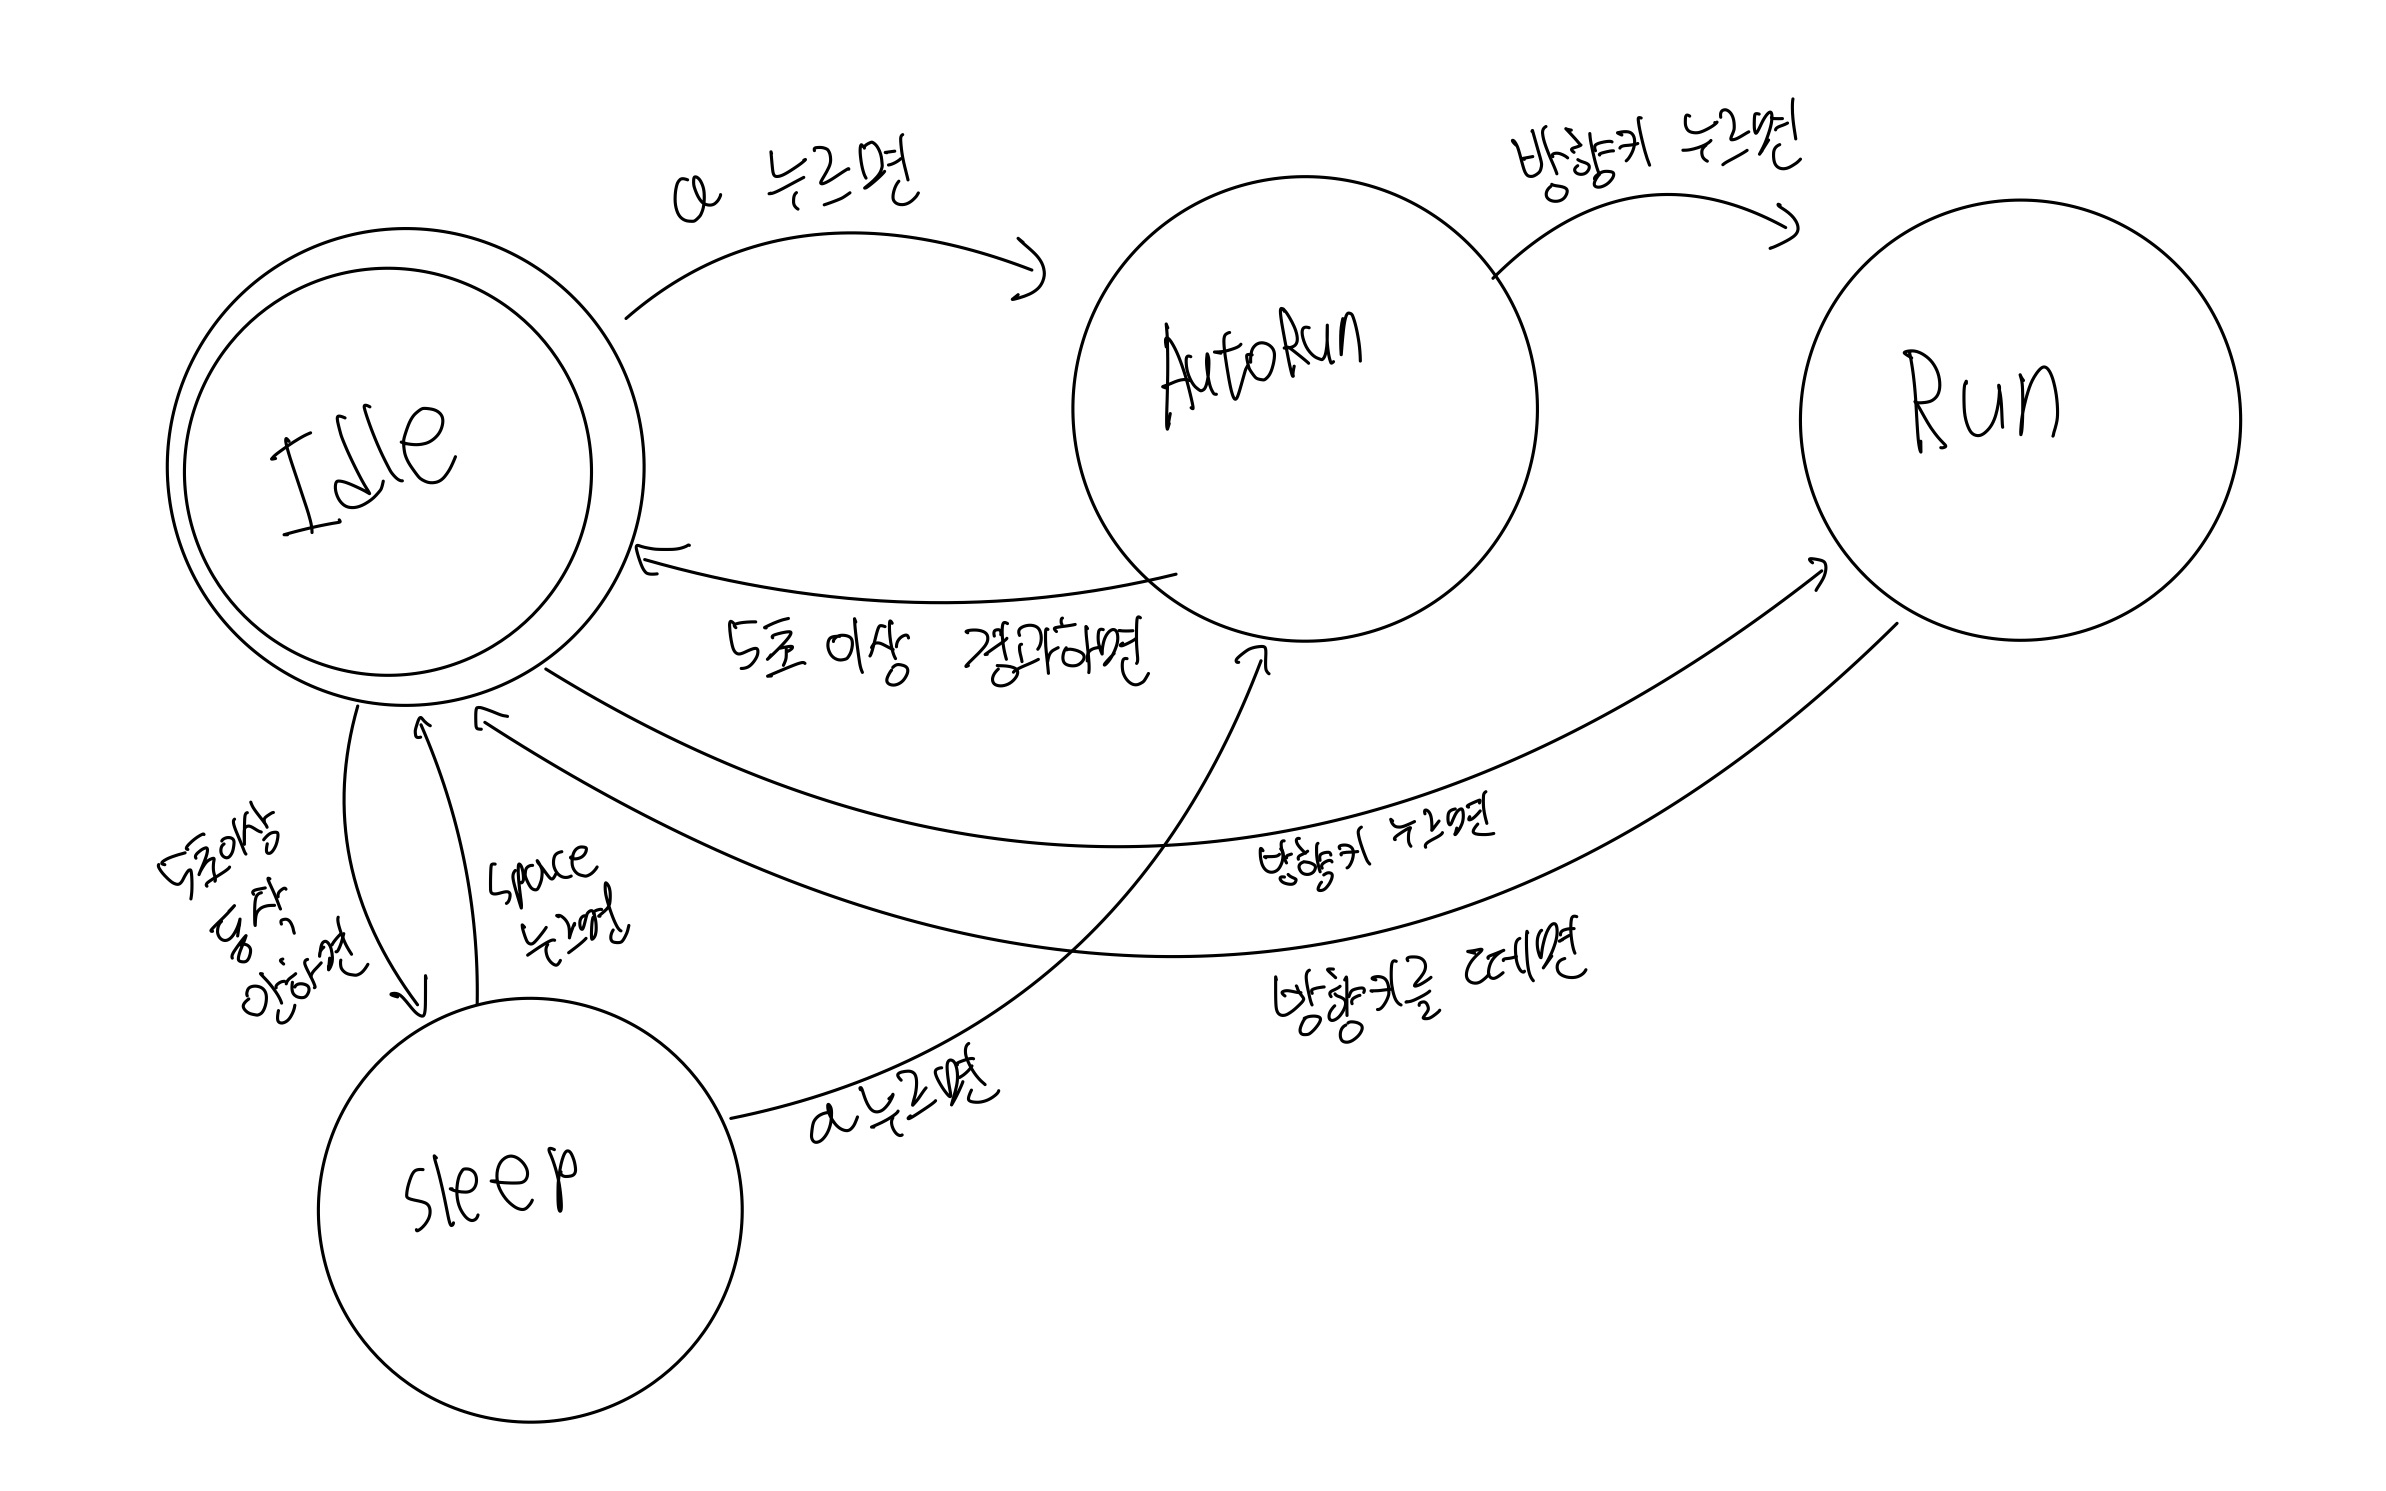 a 누르면
방향키 누르면
Idle
AutoRun
Run
5초 이상 경과하면
5초이상
동작
없으면
space
누르면
방향키 누르면
방향키를 떼면
a 누르면
Sleep